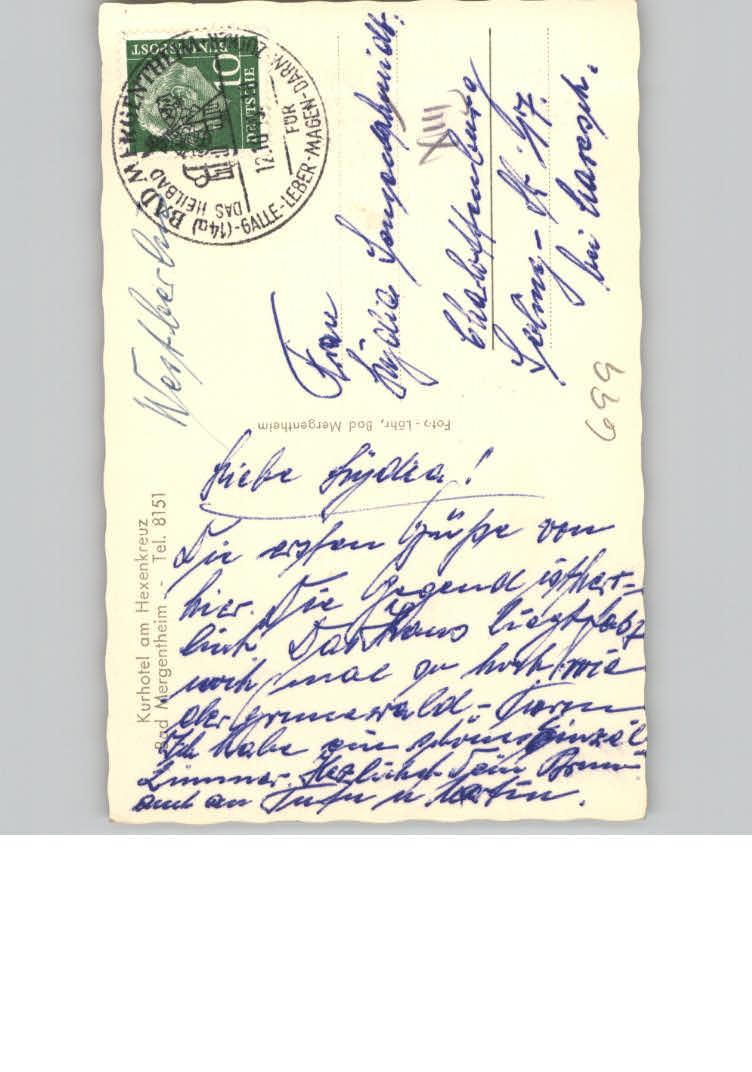 Kurhotel am Hexenkreuz
Bad Mergentheim - Tel. 8151
Foto-Löhr, Bad Mergentheim
DEUTSCHE
BUNDESPOST
10
BAD MERGENTHEIM
DAS HEILBAD
FÜR
(14a)
GALLE-LEBER-MAGEN-DARM-ZUCKER
12.10
Westberlin
Frau
Lydia
XIII
Charlottenburg
Str. 47
bei
699
Liebe Lydia!
Die ersten Grüße von
hier. Die Gegend ist herr-
lich. Das Haus liegt
noch mal so hoch wie
der Grunewald-Turm
Ich habe ein schönes Einzel
Zimmer. Herzlichst Dein Bruno
auch an u.